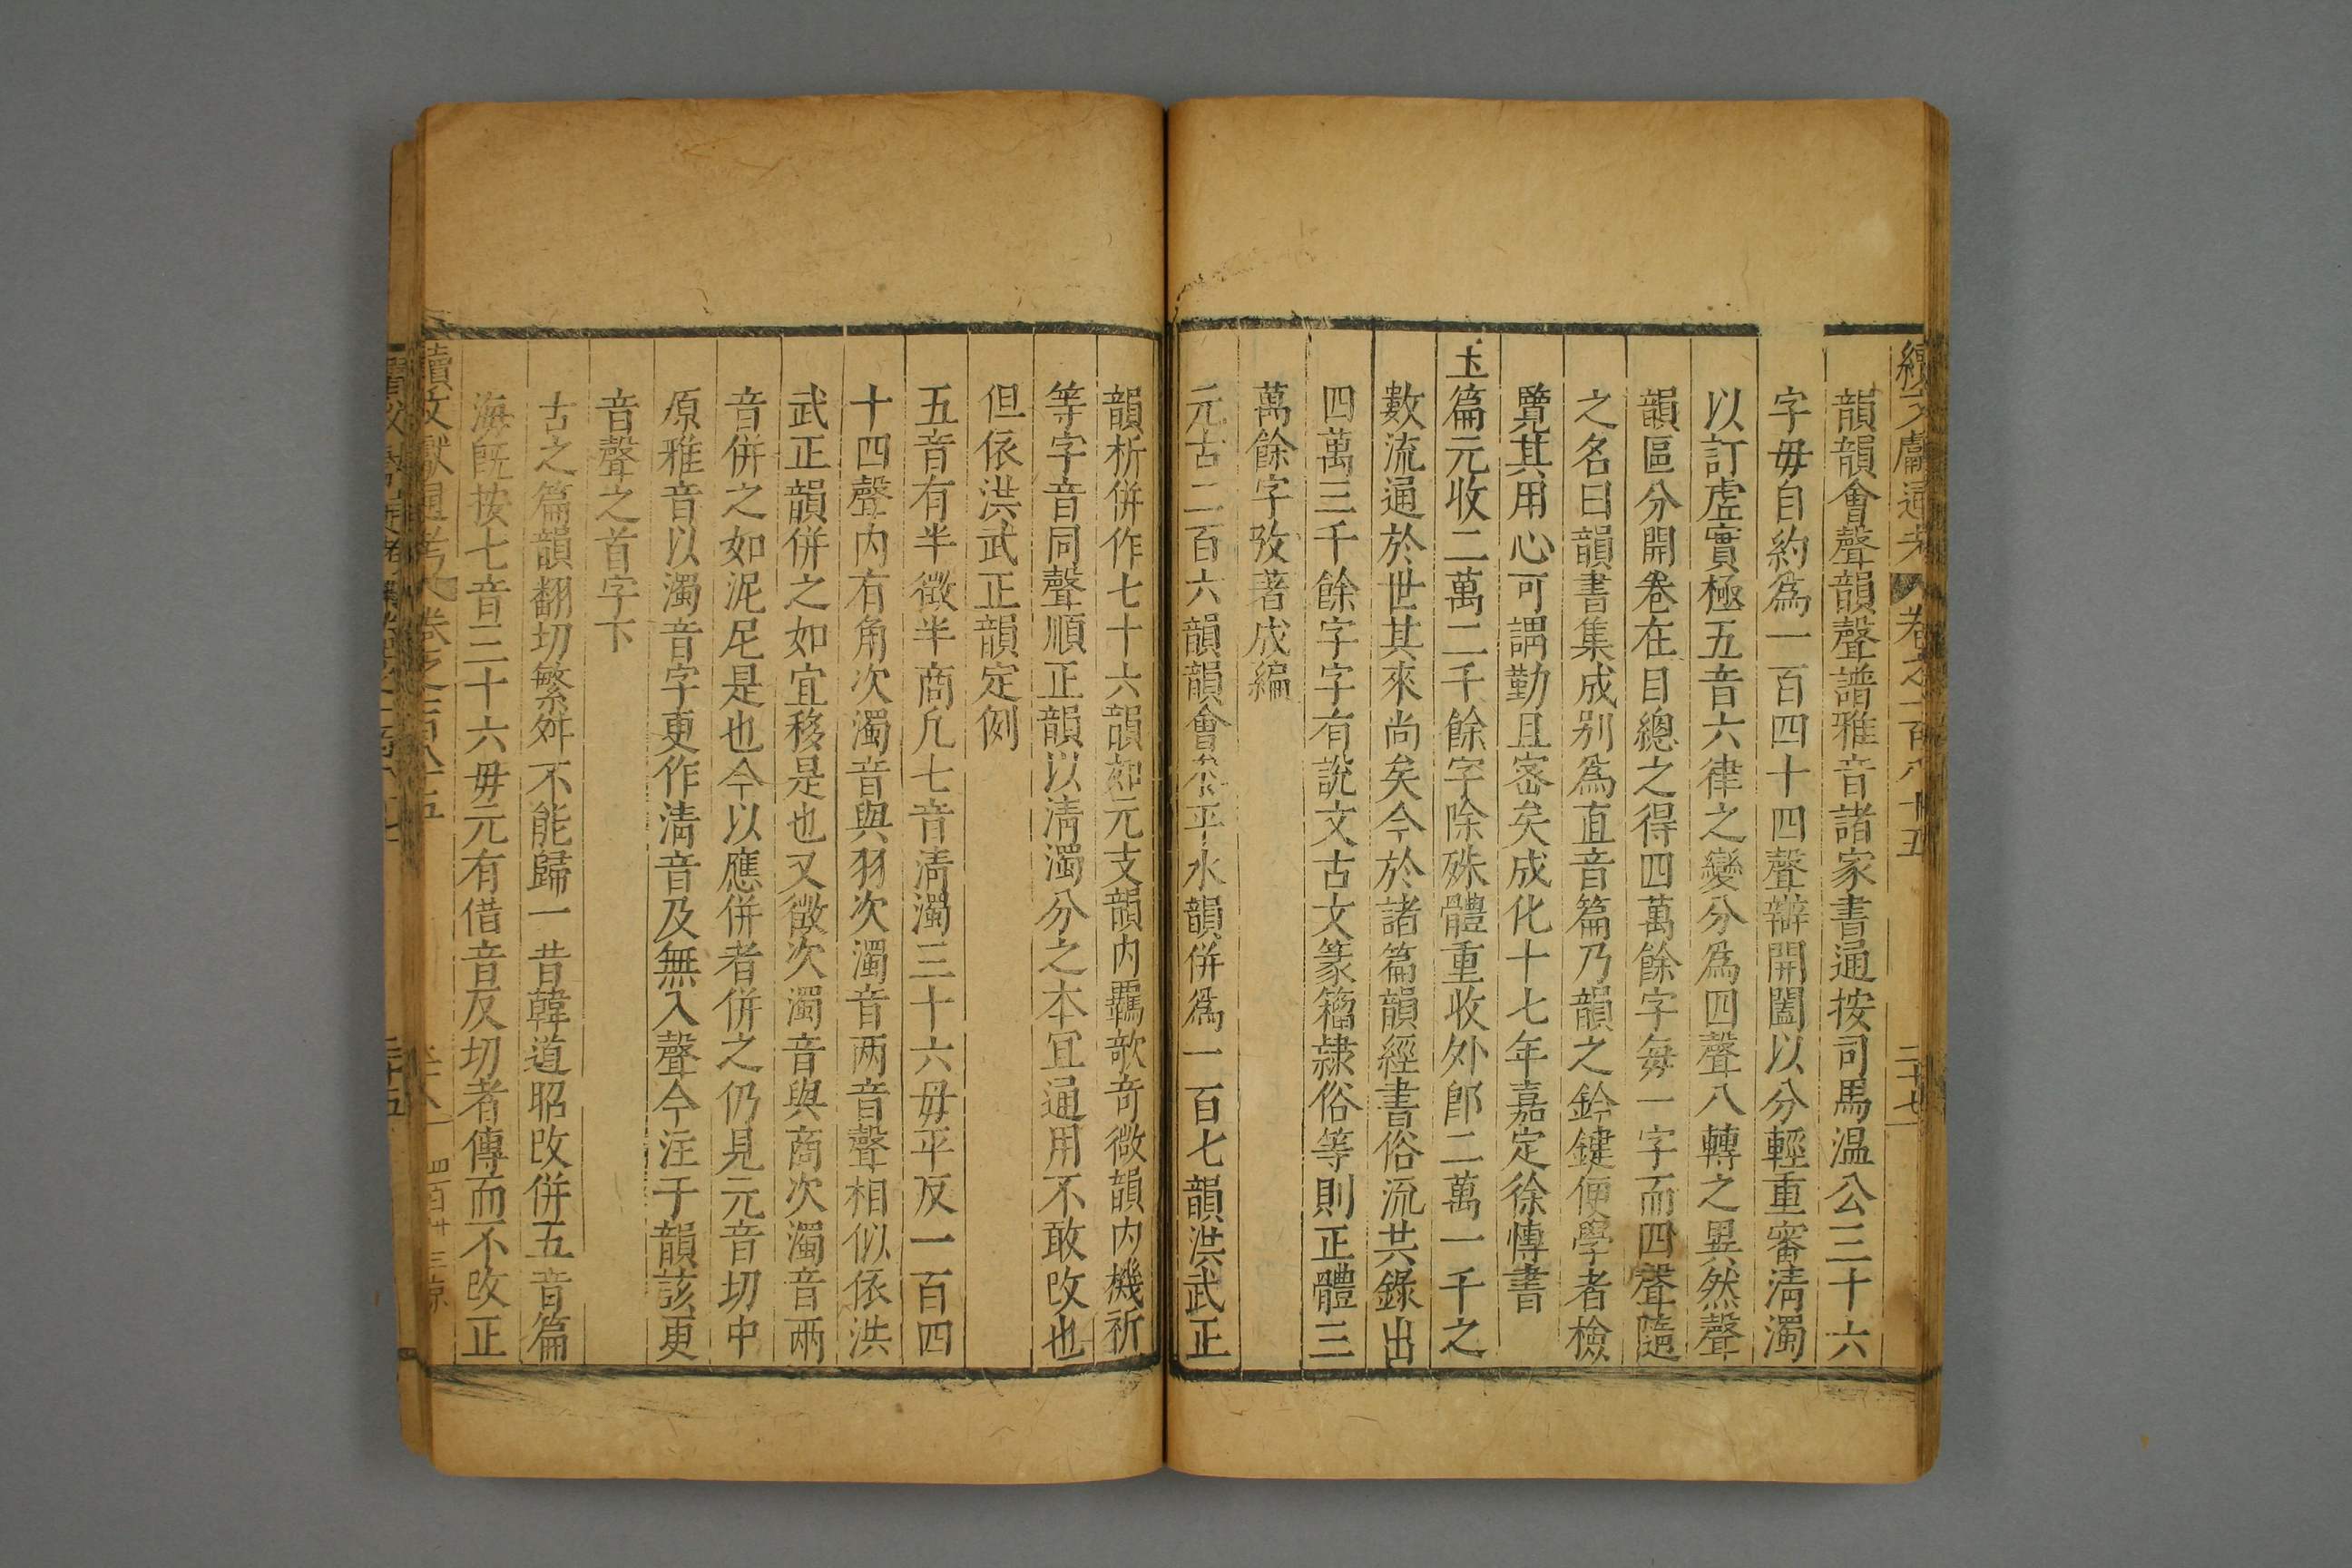 續文獻通考 卷之一百八十五 二十七
韻韻會聲韻聲譜雅音諸家書通按司馬温公三十六
字毋自約爲一百四十四聲辯開闔以分輕重審淸濁
以訂虗實極五音六律之變分爲四聲八轉之異然聲
韻區分開卷在目總之得四萬餘字每一字而四聲隨
之名曰韻書集成别爲直音篇乃韻之鈐鍵便學者檢
覽其用心可謂勤且宻矣成化十七年嘉定徐愽書
玉篇元收二萬二千餘字除殊體重收外郎二萬一千之
數流通於世其來尚矣今於諸篇韻經書俗流共錄出
四萬三千餘字字有說文古文篆籀隷俗等則正體三
萬餘字攷著成編
元古二百六韻韻會依平水韻併爲一百七韻洪武正
韻析併作七十六韻如元支韻内羈欹竒微韻内機祈
等字音同聲順正韻以淸濁分之本冝通用不敢改也
但依洪武正韻定例
五音有半徵半商凢七音淸濁三十六毋平反一百四
十四聲内有角次濁音與羽次濁音两音聲相似依洪
武正韻併之如宜移是也又徵次濁音與商次濁音兩
音併之如泥尼是也今以應併者併之仍見元音切中
原雅音以濁音字更作淸音及無入聲今注于韻該更
音聲之首字下
古之篇韻翻切繁舛不能歸一昔韓道昭改併五音篇
海既按七音三十六毋元有借音反切者傳而不改正
續文獻通考 卷之一百八十五